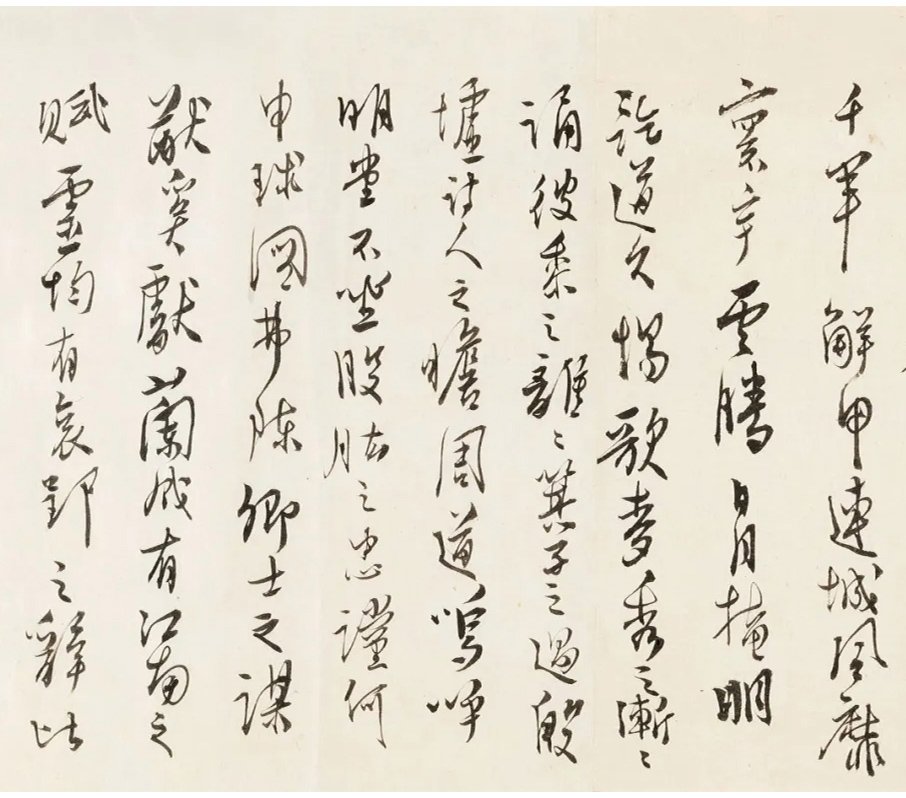 千军解甲連城風靡
寰宇雲騰日月掩明
訖道久惕歌麥秀之漸〻
誦彼黍之離〻箕子之過殷
墟詩人之瞻周道嗚呼
明堂不坐股肱之忠讜何
申球圖弗陳卿士之謀
猷奚獻蘭成有江南之
賦靈均有哀郢之辭比